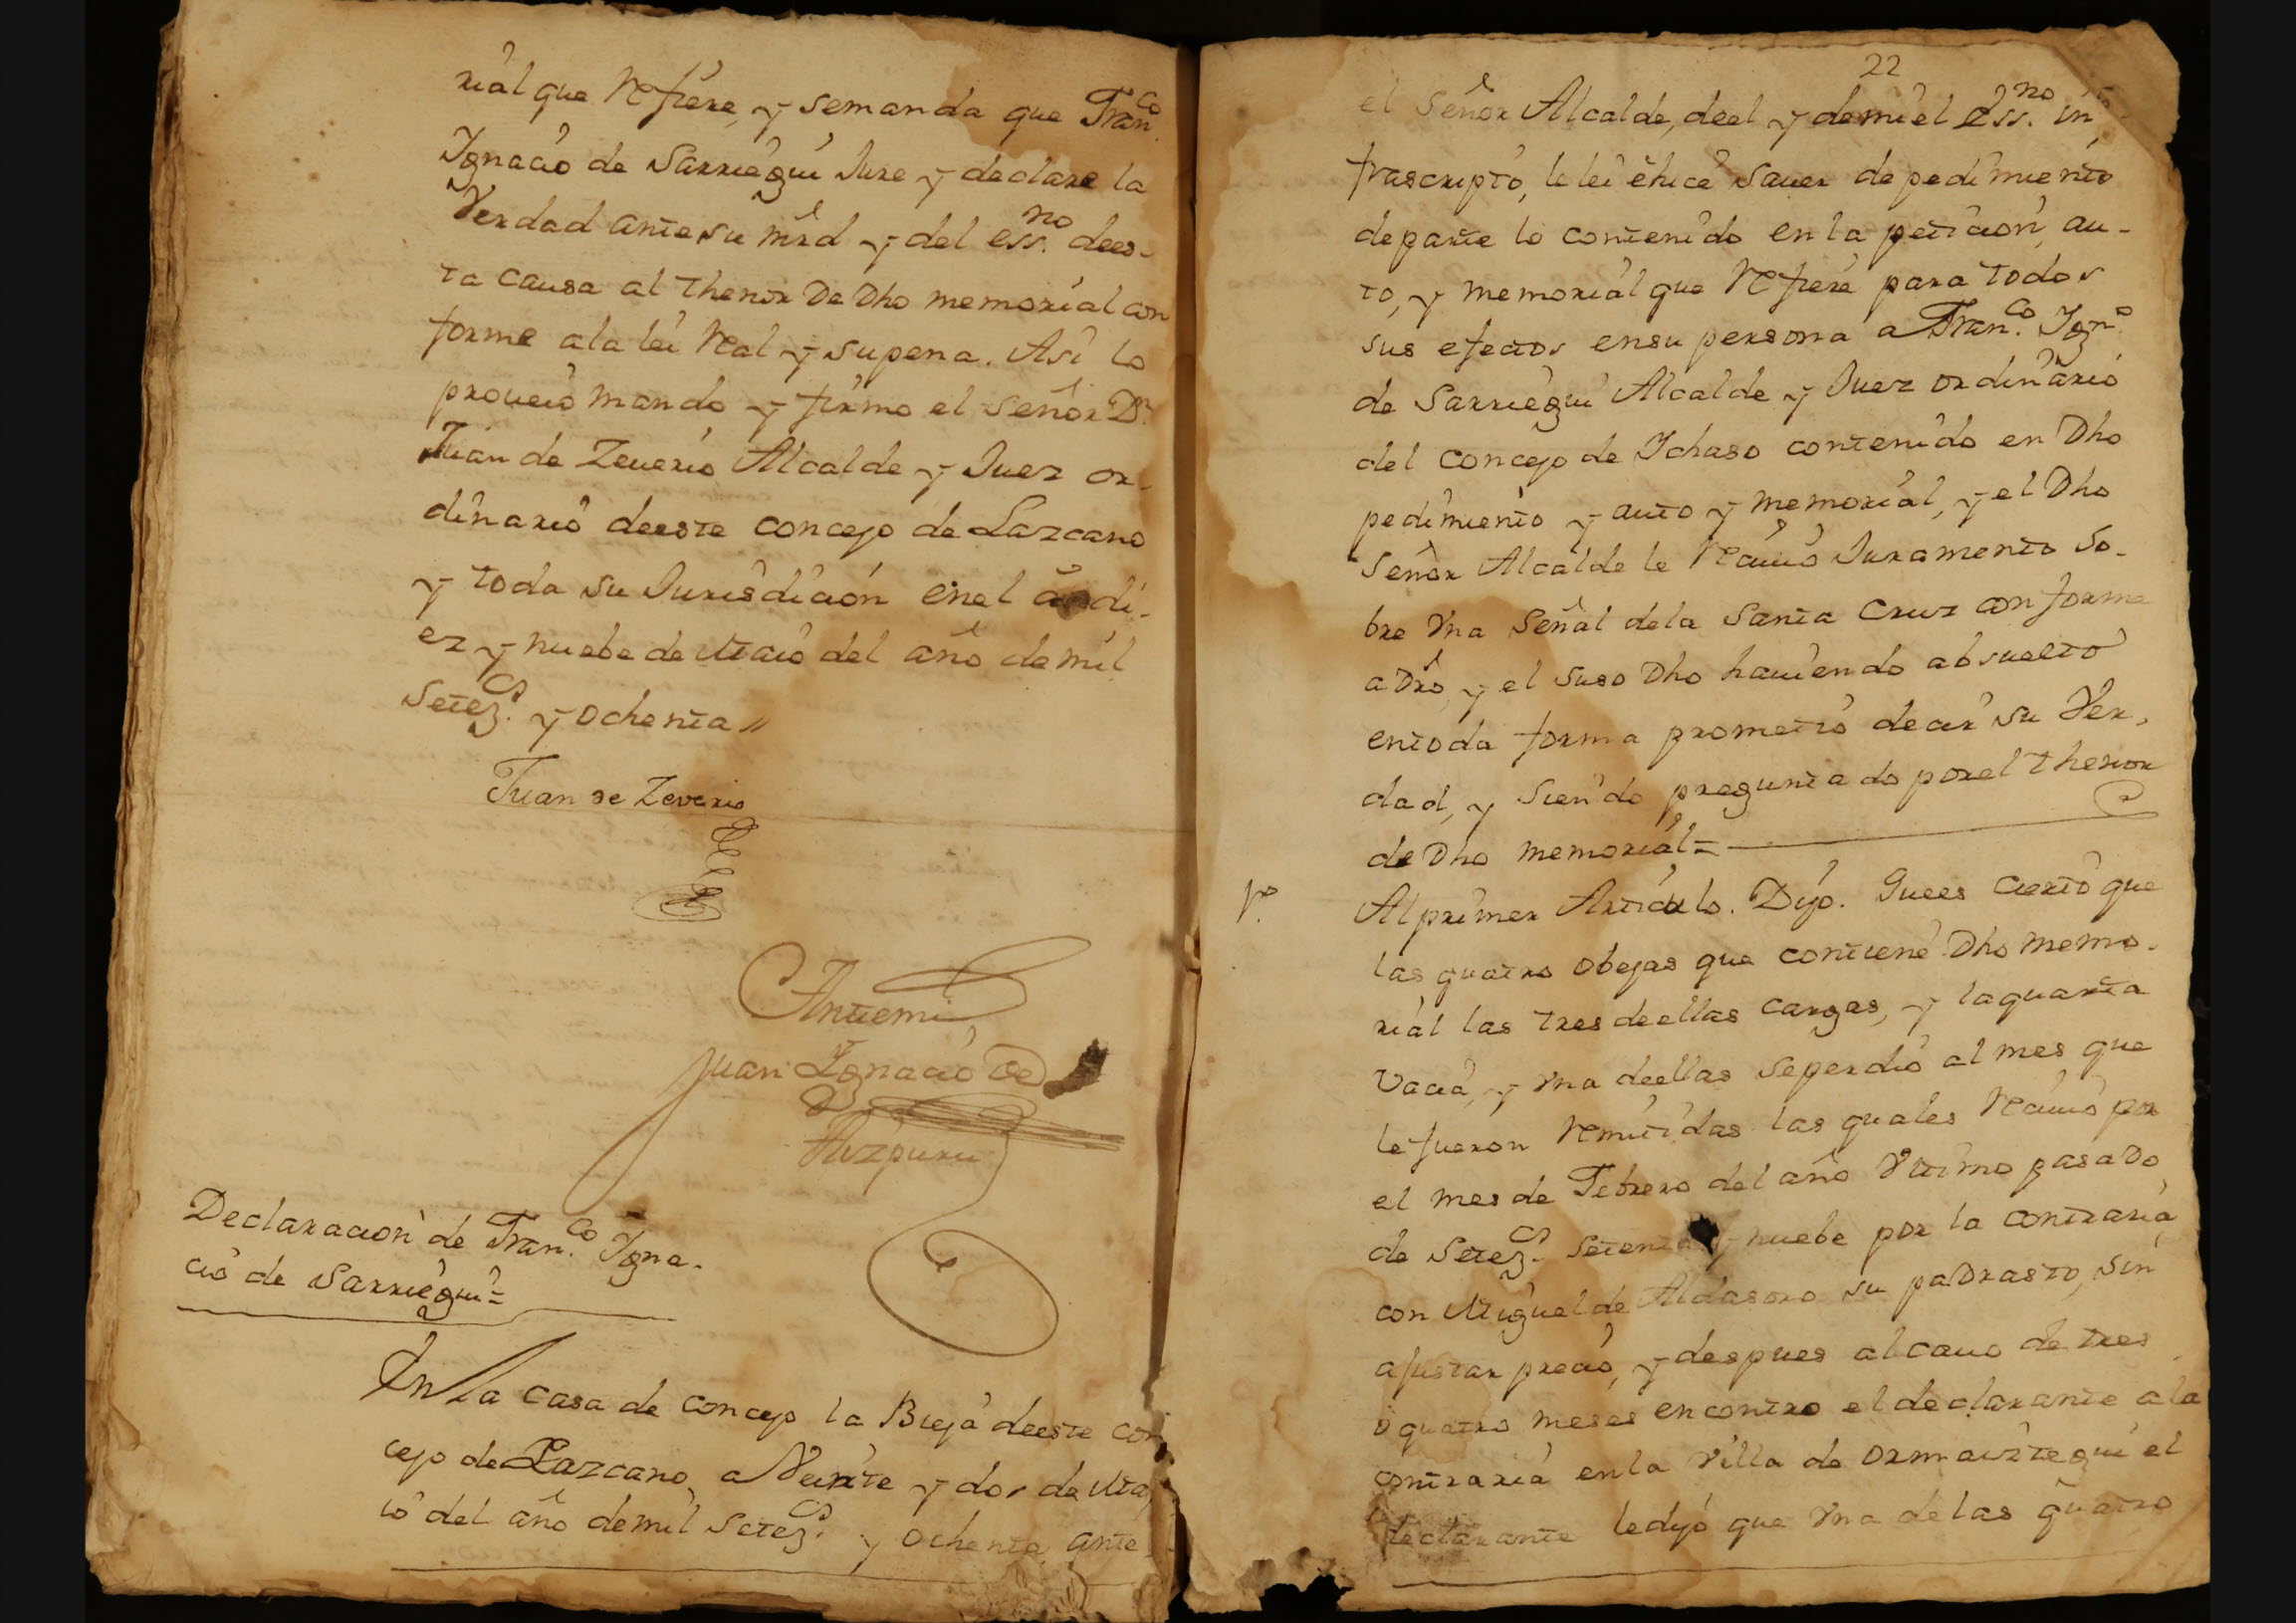 rial que Refiere, y semanda que Fran.co
Ignacio de Sarriegui Jure y declare la
Verdad antesu mrd y del ess.no dees-
ta causa al thenor De Dho memorial con
forme ala lei Real y supena. Asi lo
proveio mando y firmo el señor Dn.
Juan de Zeverio Alcalde y Juez or-
dinario deeste concejo de Lazcano
y toda su Jurisdicion enel a di-
ez y nuebe de Maio del año de mil
Setez.s y ochenta //
Juan de Zeverio
Antemi
Juan Ignacio de
Auzpuru
Declaracion de Fran.co Igna-
cio de Sarriegui =
En la casa de concejo la Bieja deeste con
cejo de Lazcano, a Veinte y dos de Ma
io del año demil Setez.s y ochenta ante
22
el Señor Alcalde, deel y demi el Ess.no in
frascripto, le lei ehice saver de pedimiento
departe lo contenido en la peticion, au-
to, y memorial que Refiere para todos
sus efectos ensu persona a Fran.co Ign.o
de Sarriegui Alcalde y Juez ordinario
del concejo de Ichaso contenido en Dho
pedimiento y auto y memorial, y el Dho
Señor Alcalde le Recivio Juramento so-
bre Vna Señal dela Santa Cruz conforme
a Dro, y el suso Dho haviendo absuelto
entoda forma prometio decir su Ver-
dad, y siendo preguntado porel thenor
de Dho memorial =
1.o Al primer Articulo. Dijo. Quees cierto que
las quatro obejas que contiene Dho memo-
rial las tres deellas cargas, y laquarta
Vacia, y Vna deellas seperdio al mes que
lefueron Remitidas las quales Recivio por
el mes de Febrero del año Vltimo pasado
de Setez.s setenta y nuebe por la contraria,
con Miguel de Aldasoro su padrasto, sin
ajustar precio, y despues al cavo de tres
o quatro meses encontro el declarante ala
contraria enla Villa de Ormaiztegui el
declarante ledijo que Vna delas quatro